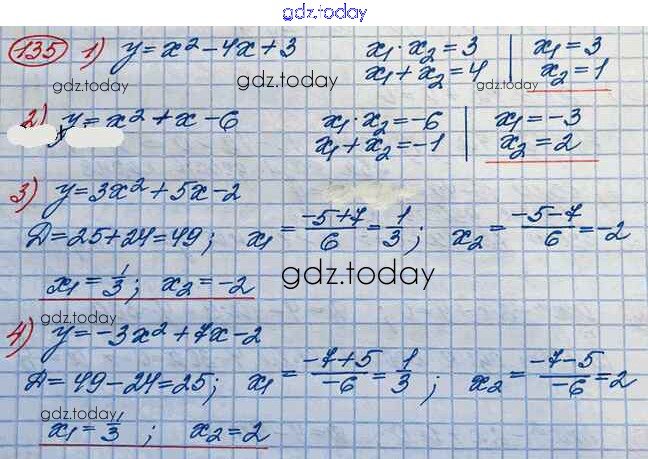 gdz.today
135 1) y=x²-4x+3 x₁·x₂=3 | x₁=3
x₁+x₂=4 | x₂=1
gdz.today gdz.today gdz.today
2) y=x²+x-6 x₁·x₂=-6 | x₁=-3
x₁+x₂=-1 | x₂=2
3) y=3x²+5x-2
Д=25+24=49; x₁=(-5+7)/6=1/3; x₂=(-5-7)/6=-2
x₁=1/3; x₂=-2 gdz.today
gdz.today
4) y=-3x²+7x-2
Д=49-24=25; x₁=(-7+5)/(-6)=1/3; x₂=(-7-5)/(-6)=2
gdz.today
x₁=1/3; x₂=2